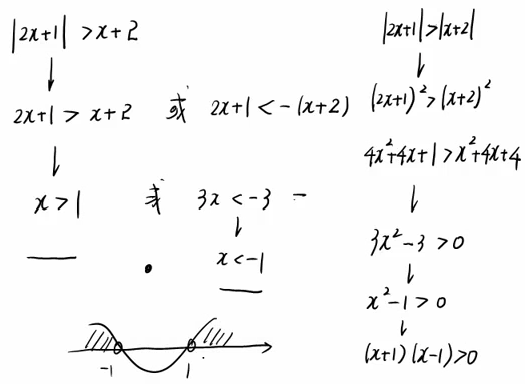 |2x+1| > x+2
2x+1 > x+2 或 2x+1 < -(x+2)
x > 1 或 3x < -3
x < -1
-1 1
|2x+1| > |x+2|
(2x+1)² > (x+2)²
4x²+4x+1 > x²+4x+4
3x²-3 > 0
x²-1 > 0
(x+1)(x-1) > 0